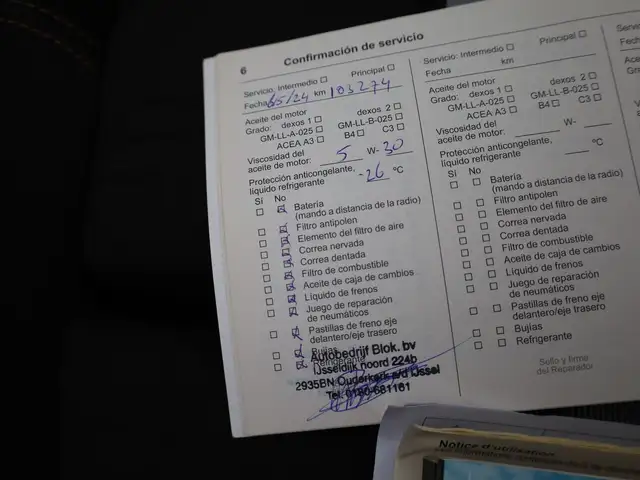 6
Confirmación de servicio
Servicio: Intermedio
Principal
Fecha 65/24 km 103274
Aceite del motor
Grado: dexos 1
dexos 2
GM-LL-A-025
GM-LL-B-025
ACEA A3
B4
C3
Viscosidad del
aceite de motor: 5 W- 30
Protección anticongelante,
líquido refrigerante -26 °C
Sí No
Batería
(mando a distancia de la radio)
Filtro antipolen
Elemento del filtro de aire
Correa nervada
Correa dentada
Filtro de combustible
Aceite de caja de cambios
Líquido de frenos
Juego de reparación
de neumáticos
Pastillas de freno eje
delantero/eje trasero
Bujías
Refrigerante
Autobedrijf Blok. bv
IJsseldijk noord 224b
2935BN Ouderkerk a/d IJssel
Tel. 0180-681161
Servicio: Intermedio
Principal
Fecha
km
Aceite del motor
Grado: dexos 1
dexos 2
GM-LL-A-025
GM-LL-B-025
ACEA A3
B4
C3
Viscosidad del
aceite de motor: W-
Protección anticongelante,
líquido refrigerante °C
Sí No
Batería
(mando a distancia de la radio)
Filtro antipolen
Elemento del filtro de aire
Correa nervada
Correa dentada
Filtro de combustible
Aceite de caja de cambios
Líquido de frenos
Juego de reparación
de neumáticos
Pastillas de freno eje
delantero/eje trasero
Bujías
Refrigerante
Sello y firme
del Reparador
Notice d'utilisation